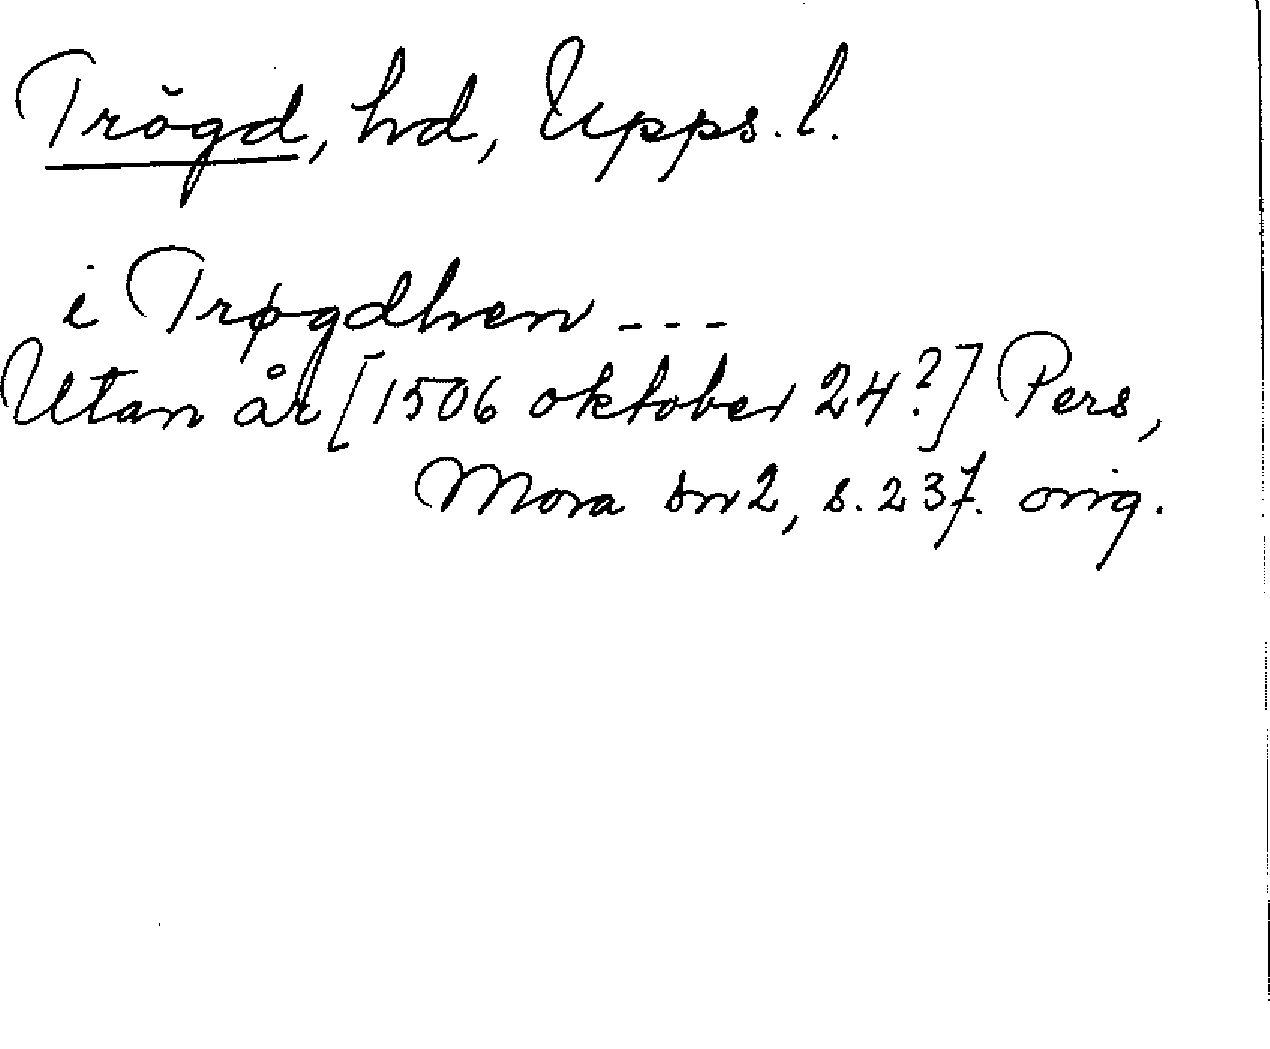 Trögd, hd, Upps. l.
i Trøgdhen ---
Utan år [1506 oktober 24?] Pers,
Mora sn 2, s. 237. orig.